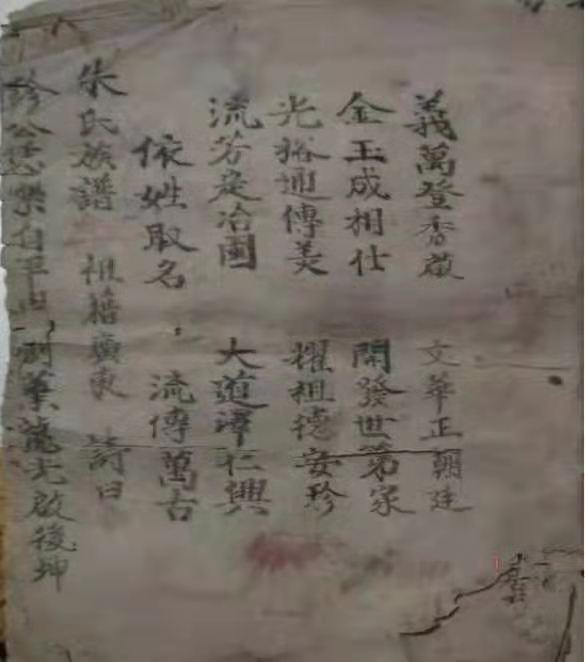 義萬登香啟 文華正朝廷
金玉成相仕 開發世第家
光裕通傳美 耀祖德安珍
流芳定治國 大道澤仁興
依姓取名 流傳萬古
朱氏族譜 祖籍廣東 詩曰
珍公 創業 啟後坤